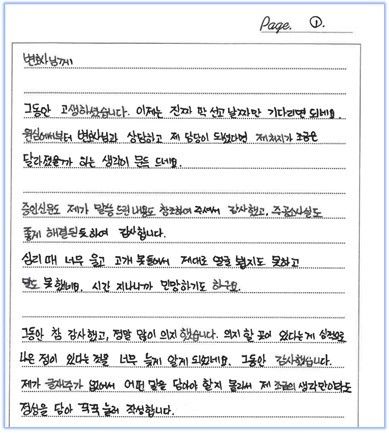 Page. ①.
변호사님께!
그동안 고생하셨습니다. 이제는 진짜 막 선고 날짜만 기다리면 되네요.
원심에서부터 변호사님과 상담하고 제 담당이 되셨다면 제 처지가 조금은
달라졌을까 하는 생각이 문득 드네요.
증인신문도 제가 말씀 드린 내용도 참조하여 주셔서 감사했고, 주공소사실도
좋게 해결된듯하여 감사합니다.
심리 때 너무 울고 고개 못들어서 제대로 얼굴 뵙지도 못하고
말도 못했네요. 시간 지나니까 민망하기도 하구요.
그동안 참 감사했고, 정말 많이 의지했습니다. 의지할 곳이 있다는게 심적으로
나은 점이 있다는 것을 너무 늦게 알게 되었네요. 그동안 감사했습니다.
제가 글재주가 없어서 어떤 말을 담아야 할지 몰라서 제 조금의 생각만이라도
정성을 담아 꾹꾹 눌러 작성합니다.